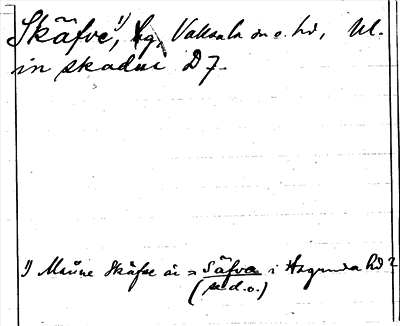 Skäfve¹⁾, hg, Vaksala sn o. hd, Ul.
in skadui D 7.
1) Månne Skäfve är = Säfva i Hagunda hd?
(u.d.o.)